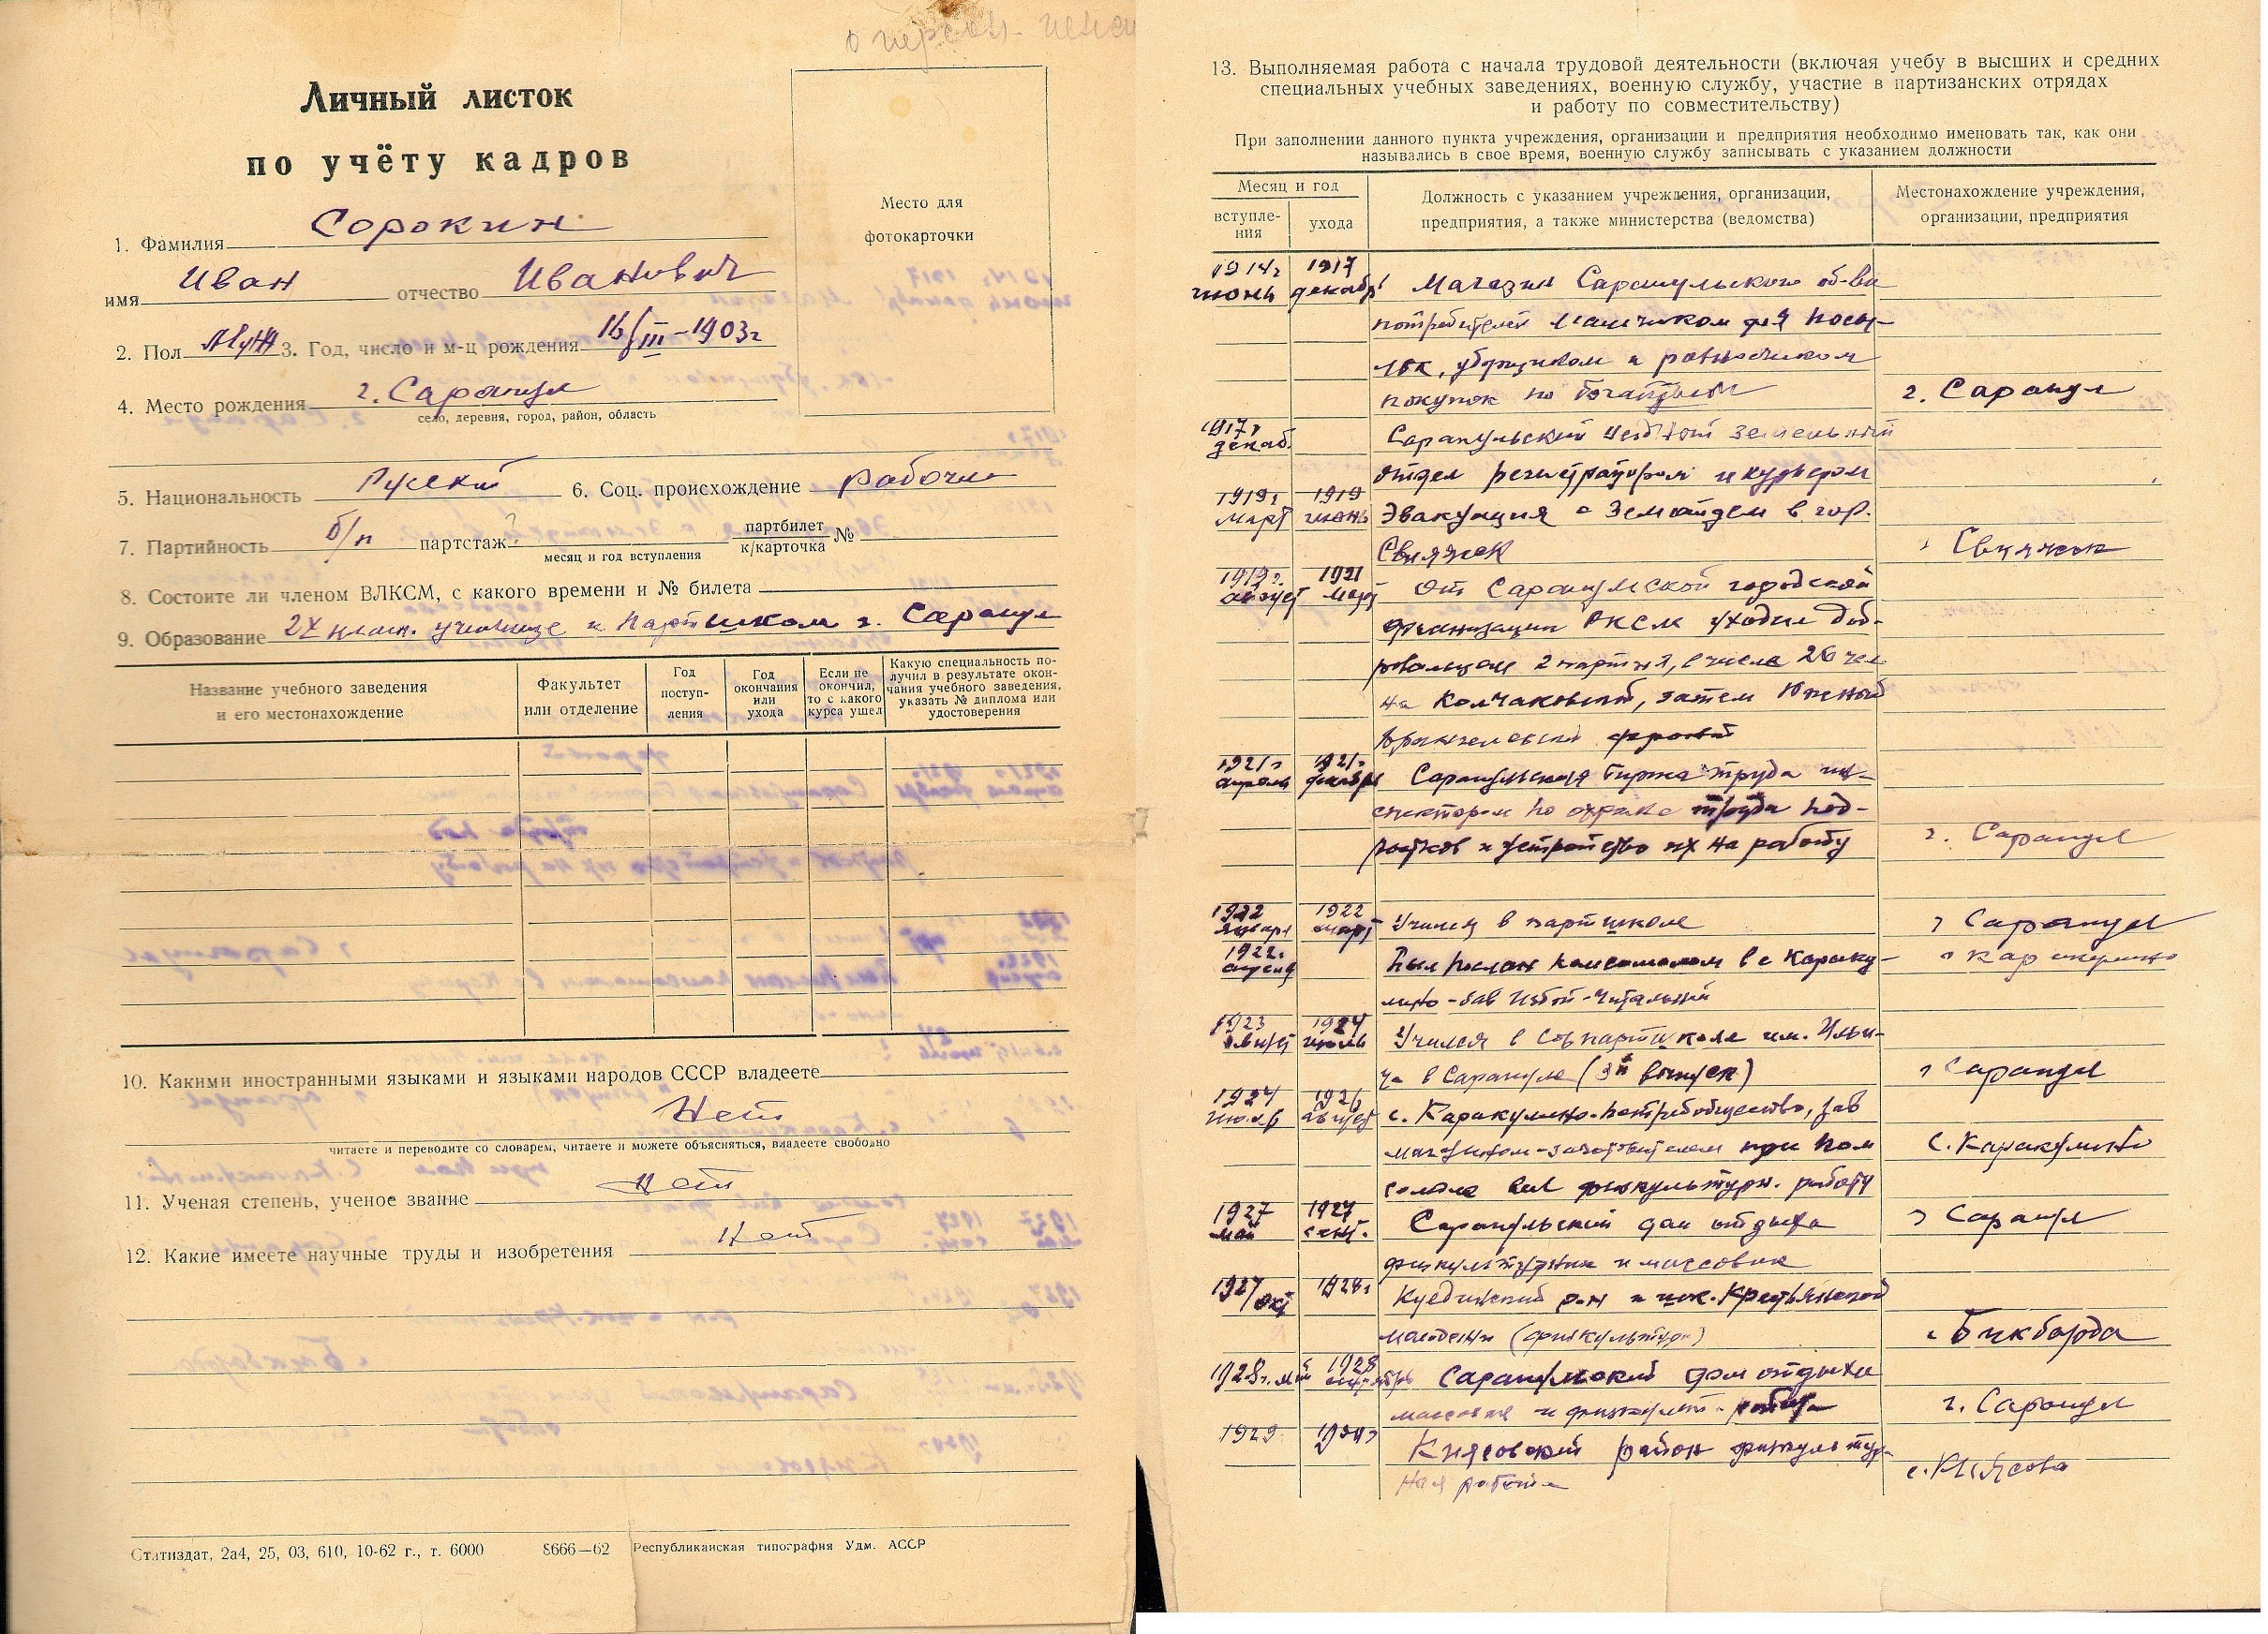 о персон. пенси
Личный листок
по учёту кадров
Место для
фотокарточки
1. Фамилия Сорокин
имя Иван отчество Иванович
2. Пол Муж 3. Год, число и м-ц рождения 16/III-1903г
4. Место рождения г. Сарапул
село, деревня, город, район, область
5. Национальность Русский 6. Соц. происхождение рабочий
7. Партийность б/п партстаж ? партбилет к/карточка №
месяц и год вступления
8. Состоите ли членом ВЛКСМ, с какого времени и № билета
9. Образование 2х класн. училище и партшкола г. Сарапул
Название учебного заведения и его местонахождение
Факультет или отделение
Год поступ-ления
Год окончания или ухода
Если не окончил, то с какого курса ушел
Какую специальность по-лучил в результате окон-чания учебного заведения, указать № диплома или удостоверения
10. Какими иностранными языками и языками народов СССР владеете
Нет
читаете и переводите со словарем, читаете и можете объясняться, владеете свободно
11. Ученая степень, ученое звание Нет
12. Какие имеете научные труды и изобретения Нет
Статиздат, 2а4, 25, 03, 610, 10-62 г., т. 6000 8666—62 Республиканская типография Удм. АССР
13. Выполняемая работа с начала трудовой деятельности (включая учебу в высших и средних
специальных учебных заведениях, военную службу, участие в партизанских отрядах
и работу по совместительству)
При заполнении данного пункта учреждения, организации и предприятия необходимо именовать так, как они
назывались в свое время, военную службу записывать с указанием должности
Месяц и год
вступле-ния
ухода
Должность с указанием учреждения, организации,
предприятия, а также министерства (ведомства)
Местонахождение учреждения,
организации, предприятия
1914г июнь 1917 декабрь Магазин Сарапульского об-ва
потребителей мальчиком для посы-
лок, уборщиком и разносчиком
покупок по богатым г. Сарапул
1917г декаб. Сарапульский уездный земельный
отдел регистратором и курьером
1919г март 1919 июнь Эвакуация с Земотделом в гор.
Свияжск г Свияжск
1919г. август 1921 март От Сарапульской городской
организации РКСМ уходил доб-
ровольцем 2 партия, в числе 26 чел
на Колчаковский, затем Южный
Врангелевский фронт
1921г апрель 1921г декабрь Сарапульская биржа труда ин-
спектором по охране труда под-
ростков и устройство их на работу г. Сарапул
1922 январь 1922 март Учился в партшколе г Сарапул
1922г. апрель Был послан комсомолом в с Караку- с Каракулино
лино - зав избой-читальней
1923 август 1924 июль Учился в Совпартшколе им. Ильи-
ча в Сарапуле (3й выпуск) г Сарапул
1924 июль 1926 август с. Каракулино. потребобщество, зав
магазином-заготовителем при ком
сомоле вел физкультурн. работу с. Каракулино
1927 май 1927 сент. Сарапульский дом отдыха г Сарапул
физкультурник и массовик
1927 окт 1928г Куединский р-н и шк. Крестьянской
молодежи (физкультура) с Бикбарда
1928г. май 1928 октябрь Сарапульский дом отдыха
массовая и физкульт. работа г. Сарапул
1929 Киясовский район физкультур-
ная работа с. Киясова